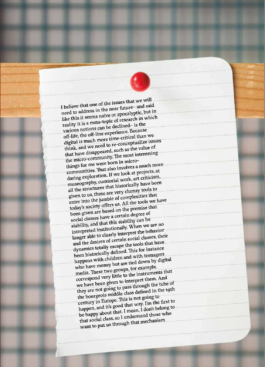 I believe that one of the issues that we will
need to address in the near future - and said
like this it seems naive or apocalyptic, but in
reality it is a meta-topic of research in which
various notions can be declined - is the
off-life, the off-line experience. Because
digital is much more time-critical than we
think, and we need to re-conceptualize issues
that have disappeared, such as the value of
the micro-community. The most interesting
things for me were born in micro-
communities. That also involves a much more
daring exploration. If we look at projects, at
museography, curatorial work, art criticism,
all the structures that historically have been
given to us, these are very clumsy tools to
enter into the jumble of complexities that
today's society offers us. All the tools we have
been given are based on the premise that
social classes have a certain degree of
stability, and that this stability can be
interpreted institutionally. When we are no
longer able to clearly interpret the behavior
and the desires of certain social classes, these
dynamics totally escape the tools that have
been historically defined. This for instance
happens with children and with teenagers
who have money but are tied down by digital
media. These two groups, for example,
correspond very little to the instruments that
we have been given to interpret them. And
they are not going to pass through the tube of
the bourgeois middle class defined in the 19th
century in Europe. This is not going to
happen, and it's good that way. I'm the first to
be happy about that. I mean, I don't belong to
that social class, so I understand those who
want to put us through that mechanism